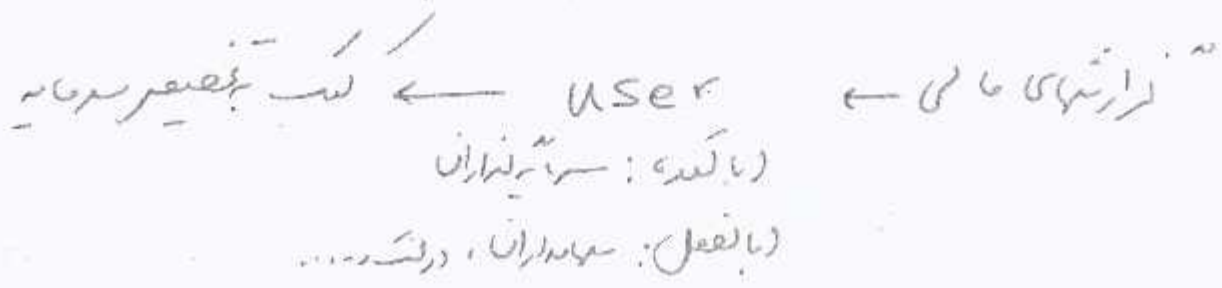 گزارشهای مالی ← user ← کمک به تخصیص سرمایه
(بالقوه: سرمایه گذاران
(بالفعل: سهامداران، دولت .....